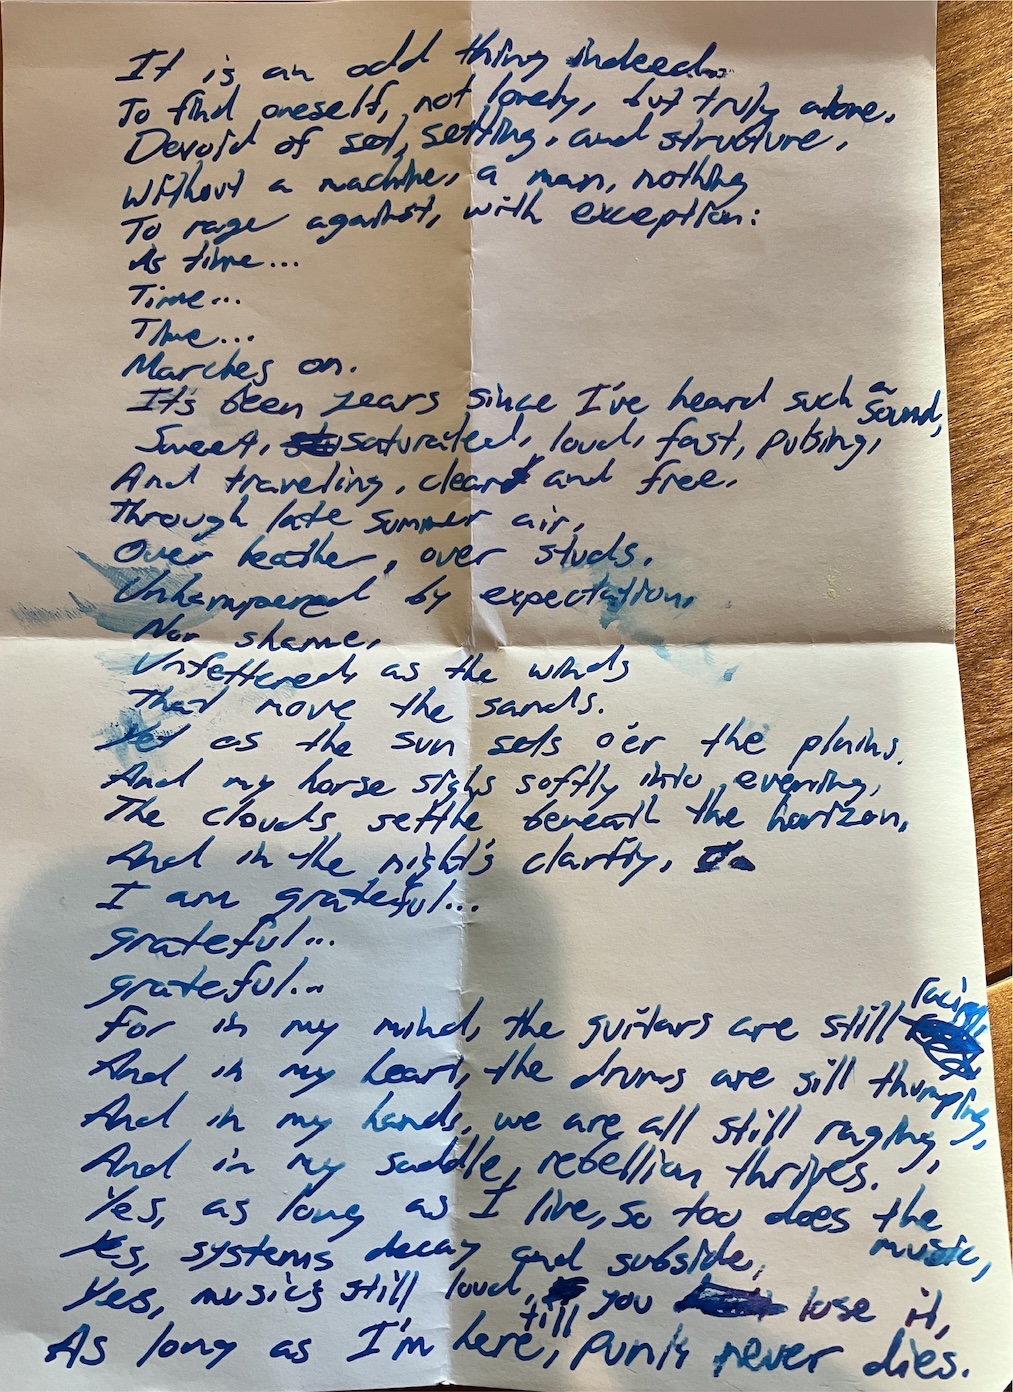 It is an odd thing indeed.
To find oneself, not lonely, but truly alone,
Devoid of set, setting, and structure,
Without a machine, a man, nothing
To rage against, with exception:
As time...
Time...
Time...
Marches on.
It's been years since I've heard such a sound,
Sweet, saturated, loud, fast, pulsing,
And traveling, clear and free,
Through late summer air,
Over leather, over studs.
Unhampered by expectation,
Nor shame,
Unfettered, as the winds
That move the sands.
Yet as the sun sets o'er the plains,
And my horse sighs softly into evening,
The clouds settle beneath the horizon,
And in the night's clarity,
I am grateful...
grateful...
grateful...
For in my mind, the guitars are still racing,
And in my heart, the drums are sill thumping,
And in my hands, we are all still raging,
And in my saddle, rebellion thrives.
Yes, as long as I live, so too does the music,
Yes, systems decay and subside,
Yes, music's still loud, till you lose it,
As long as I'm here, punk never dies.